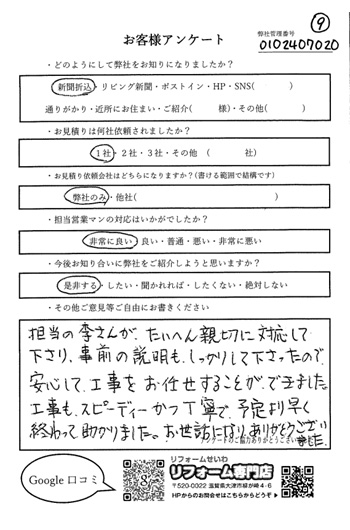 ⑨
お客様アンケート
弊社管理番号
0102407020
・どのようにして弊社をお知りになりましたか？
新聞折込・リビング新聞・ポストイン・HP・SNS(　　　)
通りがかり・近所にお住まい・ご紹介(　　　様)・その他(　　　)
・お見積りは何社依頼されましたか？
1社・2社・3社・その他　(　　　社)
・お見積り依頼会社はどちらになりますか？(書ける範囲で結構です)
弊社のみ・他社(　　　)
・担当営業マンの対応はいかがでしたか？
非常に良い・良い・普通・悪い・非常に悪い
・今後お知り合いに弊社をご紹介しようと思いますか？
是非する・したい・聞かれれば・したくない・絶対しない
・その他ご意見等ご自由にお書きください
担当の李さんが、たいへん親切に対応して
下さり、事前の説明も、しっかりして下さったので
安心して、工事をお任せすることができました。
工事も、スピーディーかつ丁寧で、予定より早く
終わって助かりました。お世話になりありがとうござい
ました。
アンケートのご協力ありがとうございました
Google 口コミ
リフォームせいわ
リフォーム専門店
〒520-0322 滋賀県大津市緑が崎4-6
HPからのお問合せはこちらからどうぞ